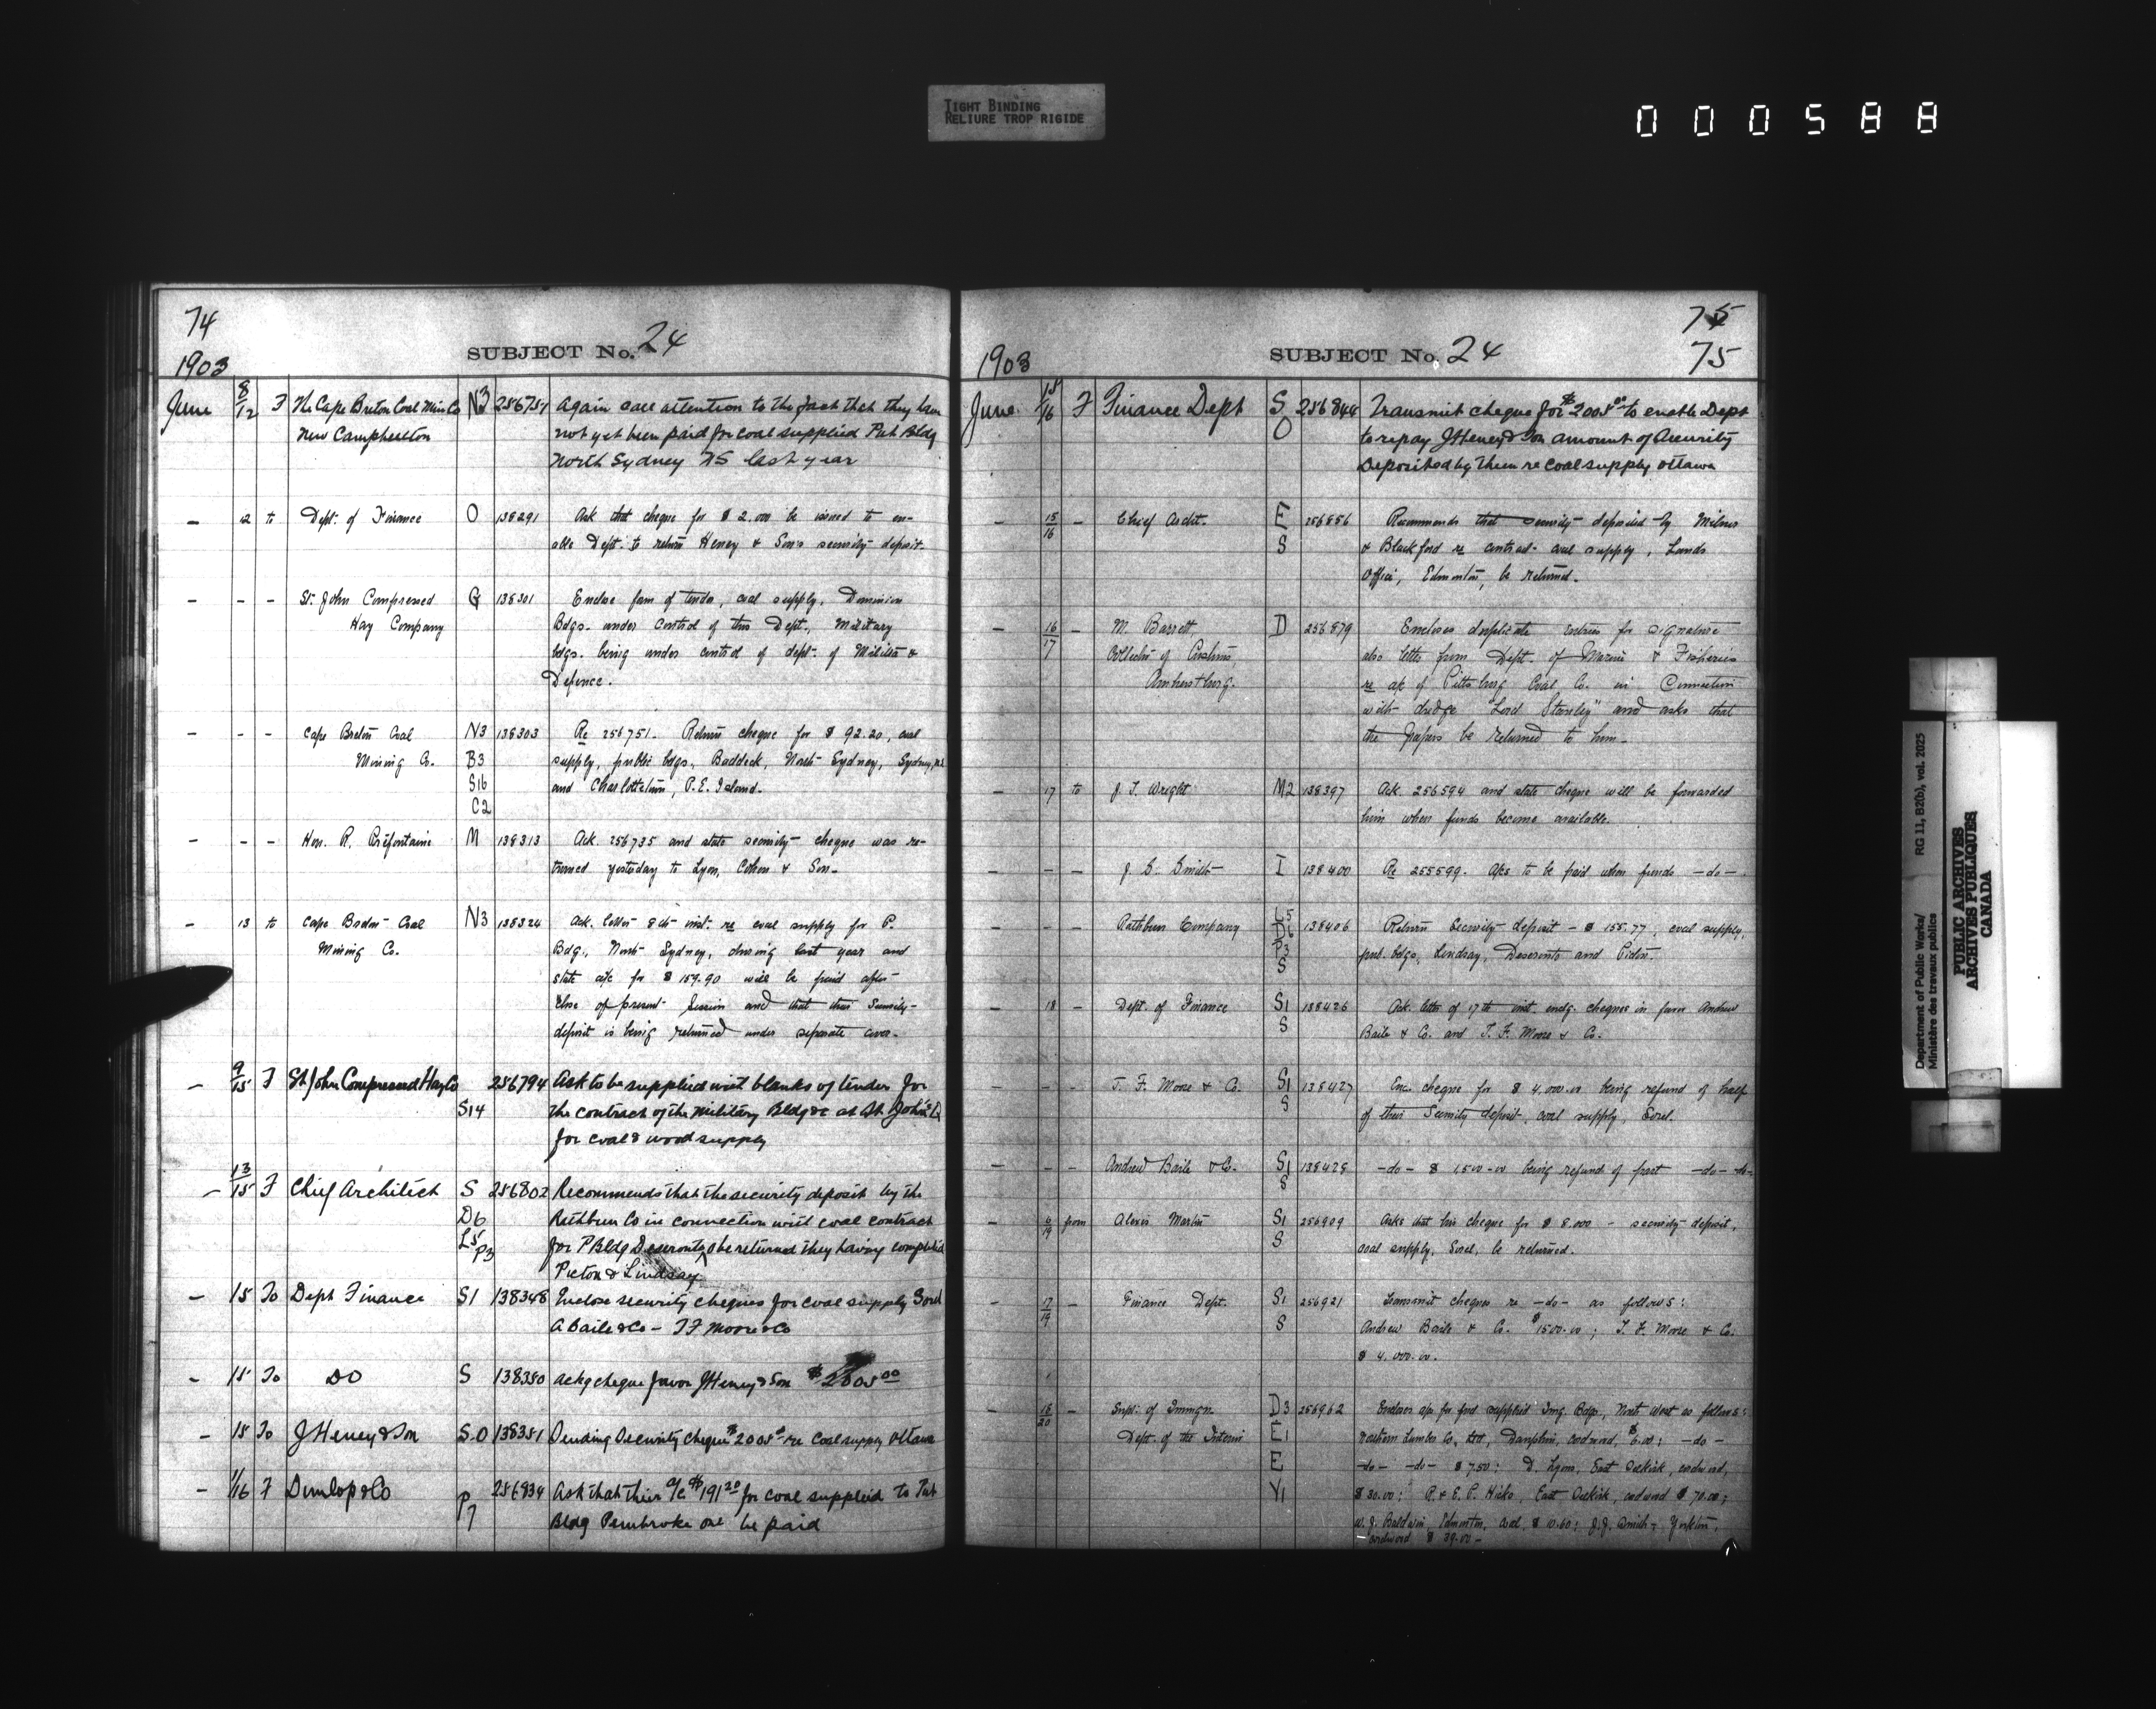 TIGHT BINDING
RELIURE TROP RIGIDE
000588
74
SUBJECT No. 24
1903
June 8/12 F The Cape Breton Coal Min Co N3 256751 Again call attention to the fact that they have
New Campbellton not yet been paid for coal supplied Pub Bldg
North Sydney NS last year
– 12 to Dept. of Finance O 138291 Ask that cheque for $ 2.000 be issued to en-
able Dept. to return Heney & Son's security deposit.
– – – St. John Compressed G 138301 Enclose form of tender, coal supply, Dominion
Hay Company Bdgs. under control of this Dept., Military
bdgs. being under control of dept. of Militia &
Defence.
– – – Cape Breton Coal N3 138303 Re 256751. Return cheque for $ 92.20, coal
Mining Co. B3 supply, public bdgs, Baddeck, North Sydney, Sydney, N.S.
S16 and Charlottetown, P.E. Island.
C2
– – – Hon. R. Préfontaine M 138313 Ack. 256735 and state security cheque was re-
turned yesterday to Lyon, Cohen & Son.
– 13 to Cape Breton Coal N3 138324 Ack. letter 8th inst. re coal supply for P.
Mining Co. Bdg., North Sydney, during last year and
state a/c for $ 159.90 will be paid after
close of present Session and that their Security
deposit is being returned under separate cover.
– 9/15 F St John Compressed Hay Co 256794 Ask to be supplied with blanks of tender for
S14 the contract of the military Bldg &c at St John's Q
for coal & wood supply
– 13/15 F Chief Architect S 256802 Recommends that the security deposit by the
D6 Rathbun Co in connection with coal contract
L5 P3 for P Bldg Deseronto be returned they having completed
Picton & Lindsay
– 15 To Dept Finance S1 138348 Enclose security cheques for coal supply Sorel
A Baile & Co – T F Moore & Co
– 15 To DO S 138350 Ackg cheque favor J Heney & Son $2005 00
– 15 To J Heney & Son S.O 138351 Sending Security cheque $2005 00 re Coal supply Ottawa
– 1/16 F Dunlop & Co P7 256834 Ask that their a/c $191 20 for coal supplied to Pub
Bldg Pembroke Ont be paid
75
SUBJECT No. 24
1903 75
June 15/16 F Finance Dept S 256844 Transmit cheque for $2005 00 to enable Dept
O to repay J Heney & Son amount of Security
Deposited by them re Coal supply Ottawa
– 15/16 – Chief Archt. E 256856 Recommends that security deposited by Milner
S & Blackford re contract coal supply, Lands
Office, Edmonton, be returned.
– 16/17 – M. Barrett D 256879 Encloses duplicate entries for signature
Collector of Customs, also letter from Dept. of Marine & Fisheries
Amherstburg. re a/c of Pittsburg Coal Co. in Connection
with dredge "Lord Stanley" and asks that
the papers be returned to him.
– 17 to J. T. Wright M2 138397 Ack. 256594 and state cheque will be forwarded
him when funds become available.
– – – J. Smith I 138400 Re 255599. A/cs to be paid when funds – do –.
– – – Rathbun Company L5 138406 Return Security deposit – $ 155.77, coal supply,
D6 pub. bdgs, Lindsay, Deseronto and Picton.
P3
S
– 18 – Dept. of Finance S1 138426 Ack. letter of 17th inst. encg. cheques in favor Andrew
S Baile & Co. and T. F. Moore & Co.
– – – T. F. Moore & Co. S1 138427 Enc. cheque for $ 4,000.00 being refund of half
S of their Security deposit, coal supply, Sorel.
– – – Andrew Baile & Co. S1 138428 – do – $ 1500.00 being refund of part – do – do –
S
– 6/19 from Alexis Martin S1 256909 Asks that his cheque for $ 8.000 – security deposit,
S coal supply, Sorel, be returned.
– 17/19 – Finance Dept. S1 256921 Transmit cheques re – do – as follows:
S Andrew Baile & Co. $1500.00; T. F. Moore & Co.
$ 4.000.00.
– 18/20 – Supt. of Immgn. D3 256962 Encloses a/cs for fuel supplied Img. Bdgs, North West as follows:
Dept. of the Interior E1 Northern Lumber Co. Ltd, Dauphin, cordwood, $6.00; – do –
E – do – – do – $ 7.50; D. Lyon, East Selkirk, cordwood,
Y1 $ 30.00; R. & E. P. Hicks, East Selkirk, cordwood $ 70.00;
W. J. Baldwin, Edmonton, coal, $ 10.60; J. J. Smith, Yorkton,
cordwood $ 39.00 –
Department of Public Works/
Ministère des travaux publics
RG 11, B2(b), vol. 2025
PUBLIC ARCHIVES
ARCHIVES PUBLIQUES
CANADA